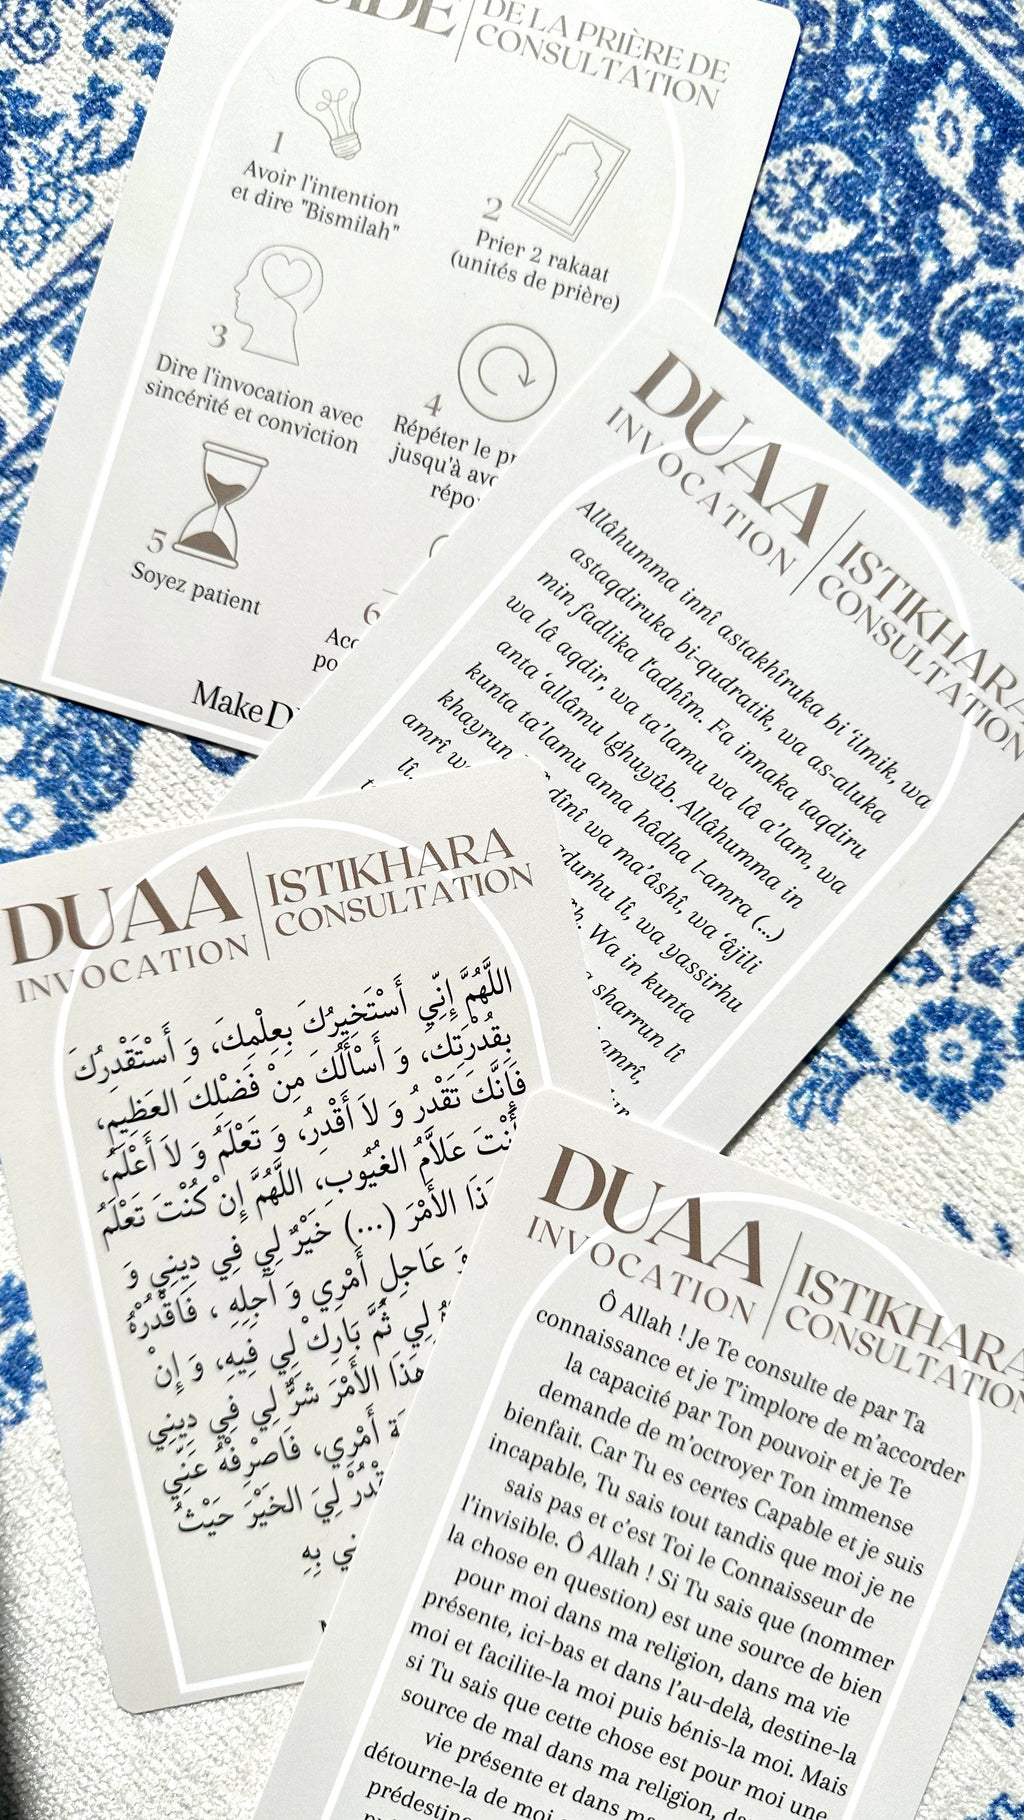 DE LA PRIÈRE DE
CONSULTATION
1
Avoir l'intention
et dire "Bismilah"
2
Prier 2 rakaat
(unités de prière)
3
Dire l'invocation avec
sincérité et conviction
4
Répéter le
jusqu'à
5
Soyez patient
6
Make
DUAA
INVOCATION
ISTIKHARA
CONSULTATION
Allâhumma innî astakhîruka bi 'ilmik, wa
astaqdiruka bi-qudratik, wa as-aluka
min fadlika l'adhîm. Fa innaka taqdiru
wa lâ aqdir, wa ta'lamu wa lâ a'lam, wa
anta 'allâmu lghuyûb. Allâhumma in
kunta ta'lamu anna hâdha l-amra (...)
khayrun dînî wa ma'âshî, wa 'âjili
amrî lî, wa yassirhu
lî. Wa in kunta
sharrun lî
amrî,
DUAA
INVOCATION
ISTIKHARA
CONSULTATION
اللَّهُمَّ إِنِّي أَسْتَخِيرُكَ بِعِلْمِكَ، وَ أَسْتَقْدِرُكَ
بِقُدْرَتِكَ، وَ أَسْأَلُكَ مِنْ فَضْلِكَ العَظِيمِ،
فَإِنَّكَ تَقْدْرُ وَ لاَ أَقْدِرُ، وَ تَعْلَمُ وَ لاَ أَعْلَمُ،
أَنْتَ عَلاَّمُ الغُيُوبِ، اللَّهُمَّ إِنْ كُنْتَ تَعْلَمُ
الأَمْرَ (...) خَيْرٌ لِي فِي دِينِي وَ
وَ عَاجِلِ أَمْرِي وَ آجِلِهِ ، فَاقْدُرْهُ
لِي ثُمَّ بَارِكْ لِي فِيهِ، وَ إِنْ
هَذَا الأَمْرَ شَرٌّ لِي فِي دِينِي
أَمْرِي، فَاصْرِفْهُ عَنِّي
لِيَ الخَيْرَ حَيْثُ
بِهِ
DUAA
INVOCATION
ISTIKHARA
CONSULTATION
Ô Allah ! Je Te consulte de par Ta
connaissance et je T'implore de m'accorder
la capacité par Ton pouvoir et je Te
demande de m'octroyer Ton immense
bienfait. Car Tu es certes Capable et je suis
incapable, Tu sais tout tandis que moi je ne
sais pas et c'est Toi le Connaisseur de
l'invisible. Ô Allah ! Si Tu sais que (nommer
la chose en question) est une source de bien
pour moi dans ma religion, dans ma vie
présente, ici-bas et dans l'au-delà, destine-la
moi et facilite-la moi puis bénis-la moi. Mais
si Tu sais que cette chose est pour moi une
source de mal dans ma religion,
vie présente et dans
détourne-la de moi